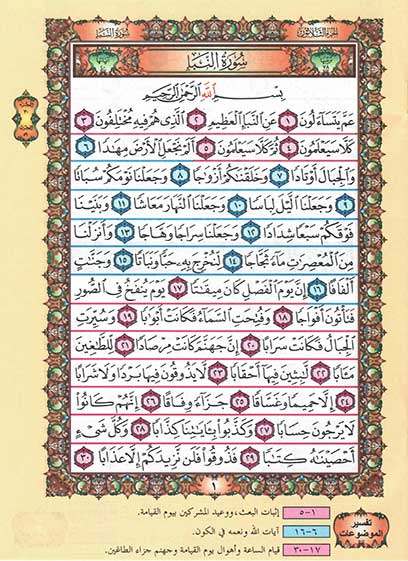 الجزء الثلاثون
سُورَةُ النَّبَإِ
سُورَةُ النَّبَإِ
بِسْمِ اللَّهِ الرَّحْمَٰنِ الرَّحِيمِ
عَمَّ يَتَسَآءَلُونَ ١ عَنِ ٱلنَّبَإِ ٱلْعَظِيمِ ٢ ٱلَّذِى هُمْ فِيهِ مُخْتَلِفُونَ ٣
كَلَّا سَيَعْلَمُونَ ٤ ثُمَّ كَلَّا سَيَعْلَمُونَ ٥ أَلَمْ نَجْعَلِ ٱلْأَرْضَ مِهَٰدًا ٦
وَٱلْجِبَالَ أَوْتَادًا ٧ وَخَلَقْنَٰكُمْ أَزْوَٰجًا ٨ وَجَعَلْنَا نَوْمَكُمْ سُبَاتًا
٩ وَجَعَلْنَا ٱلَّيْلَ لِبَاسًا ١٠ وَجَعَلْنَا ٱلنَّهَارَ مَعَاشًا ١١ وَبَنَيْنَا
فَوْقَكُمْ سَبْعًا شِدَادًا ١٢ وَجَعَلْنَا سِرَاجًا وَهَّاجًا ١٣ وَأَنزَلْنَا
مِنَ ٱلْمُعْصِرَٰتِ مَآءً ثَجَّاجًا ١٤ لِّنُخْرِجَ بِهِۦ حَبًّا وَنَبَاتًا ١٥ وَجَنَّٰتٍ
أَلْفَافًا ١٦ إِنَّ يَوْمَ ٱلْفَصْلِ كَانَ مِيقَٰتًا ١٧ يَوْمَ يُنفَخُ فِى ٱلصُّورِ
فَتَأْتُونَ أَفْوَاجًا ١٨ وَفُتِحَتِ ٱلسَّمَآءُ فَكَانَتْ أَبْوَٰبًا ١٩ وَسُيِّرَتِ
ٱلْجِبَالُ فَكَانَتْ سَرَابًا ٢٠ إِنَّ جَهَنَّمَ كَانَتْ مِرْصَادًا ٢١ لِّلطَّٰغِينَ
مَـَٔابًا ٢٢ لَّٰبِثِينَ فِيهَآ أَحْقَابًا ٢٣ لَّا يَذُوقُونَ فِيهَا بَرْدًا وَلَا شَرَابًا
٢٤ إِلَّا حَمِيمًا وَغَسَّاقًا ٢٥ جَزَآءً وِفَاقًا ٢٦ إِنَّهُمْ كَانُوا۟
لَا يَرْجُونَ حِسَابًا ٢٧ وَكَذَّبُوا۟ بِـَٔايَٰتِنَا كِذَّابًا ٢٨ وَكُلَّ شَىْءٍ
أَحْصَيْنَٰهُ كِتَٰبًا ٢٩ فَذُوقُوا۟ فَلَن نَّزِيدَكُمْ إِلَّا عَذَابًا ٣٠
١
تفسير الموضوعات
١-٥ إثبات البعث، ووعيد المشركين بيوم القيامة.
٦-١٦ آيات الله ونعمه في الكون.
١٧-٣٠ قيام الساعة وأهوال يوم القيامة وجهنم جزاء الطاغين.